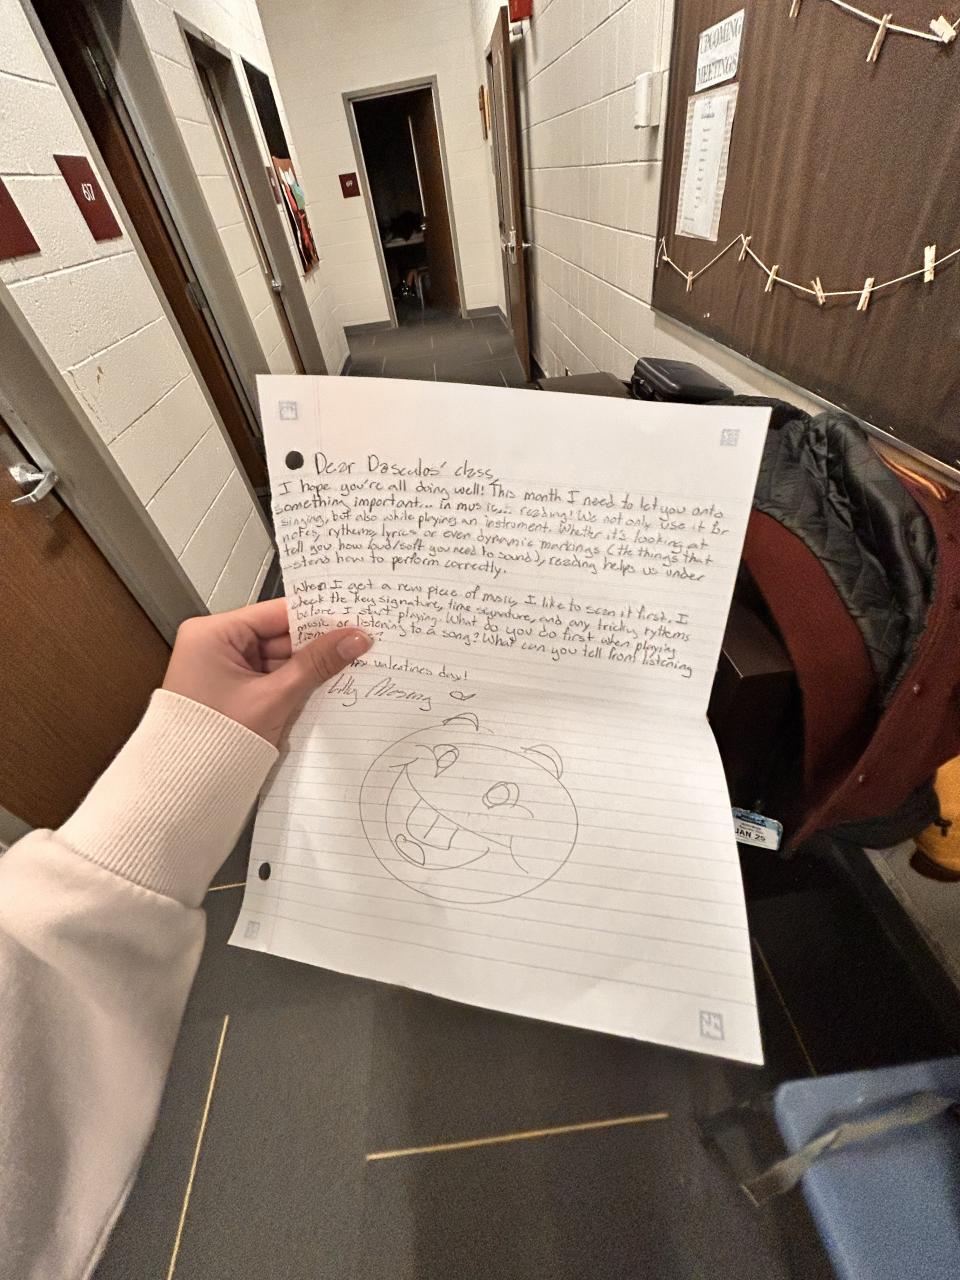 UPCOMING
MEETINGS
617
Dear Dascolos' class,
I hope you're all doing well! This month I need to let you onto
something important... in music... reading! We not only use it for
singing, but also while playing an instrument. Whether it's looking at
notes, rythems, lyrics or even dynamic markings (the things that
tell you how loud/soft you need to sound), reading helps us under
-stand how to perform correctly.
When I get a new piece of music, I like to scan it first. I
check the key signature, time signature, and any tricky rythems
before I start playing. What do you do first when playing
music or listening to a song? What can you tell from listening
valentines day!
Lilly
JAN 25